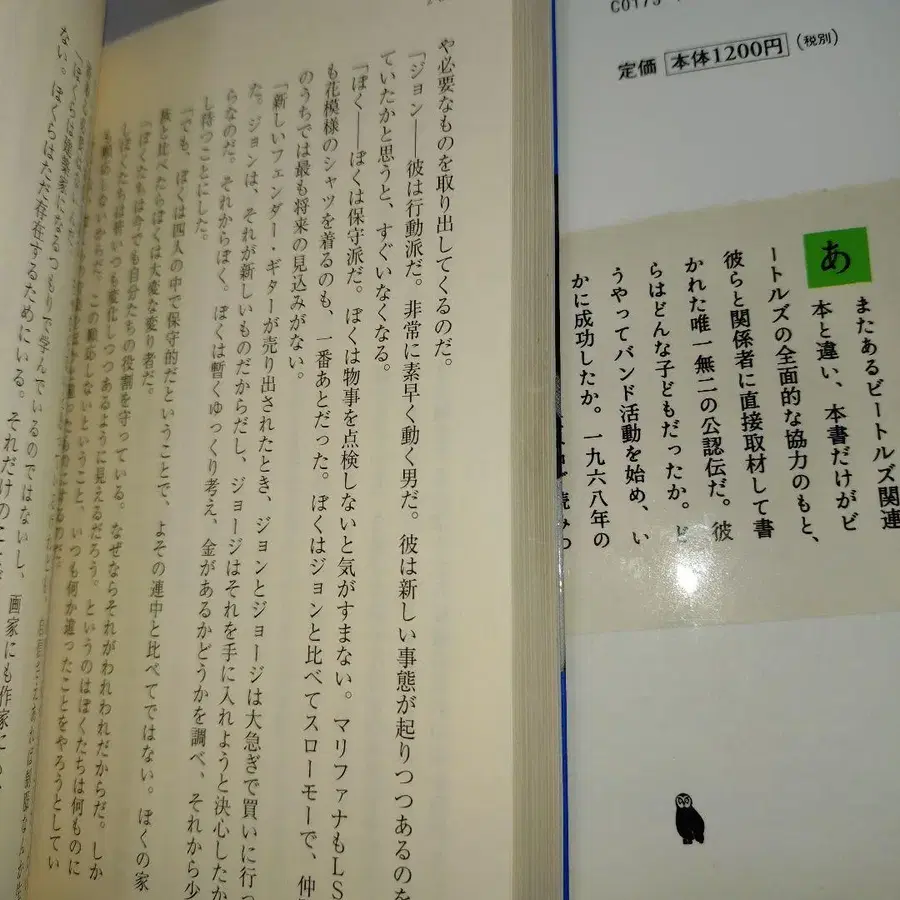 C0173
定価 本体1200円 (税別)
あ
またあるビートルズ関連
本と違い、本書だけがビ
ートルズの全面的な協力のもと、
彼らと関係者に直接取材して書
かれた唯一無二の公認伝だ。彼
らはどんな子どもだったか。ど
うやってバンド活動を始め、い
かに成功したか。一九六八年の
や必要なものを取り出してくるのだ。
「ジョン――彼は行動派だ。非常に素早く動く男だ。彼は新しい事態が起りつつあるのを
ていたかと思うと、すぐいなくなる。
「ぼく――ぼくは保守派だ。ぼくは物事を点検しないと気がすまない。マリファナもLS
も花模様のシャツを着るのも、一番あとだった。ぼくはジョンと比べてスローモーで、仲
のうちでは最も将来の見込みがない。
「新しいフェンダー・ギターが売り出されたとき、ジョンとジョージは大急ぎで買いに行っ
た。ジョンは、それが新しいものだからだし、ジョージはそれを手に入れようと決心したか
らなのだ。それからぼく。ぼくは暫くゆっくり考え、金があるかどうかを調べ、それから少
し待つことにした。
「でも、ぼくは四人の中で保守的だということで、よその連中と比べてではない。ぼくの家
族と比べたらぼくは大変な変り者だ。
「ぼくたちは今でも自分たちの役割を守っている。なぜならそれがわれわれだからだ。しか
しぼくたちは終いつも変化しつつあるように見えるだろう。というのはぼくたちは何ものに
も順応しないからだ。この順応しないということ、いつも何か違ったことをやろうとしてい
「ぼくらは建築家になるつもりで学んでいるのではないし、画家にも作家にも
ない。ぼくらはただ存在するためにいる。それだけのことだ